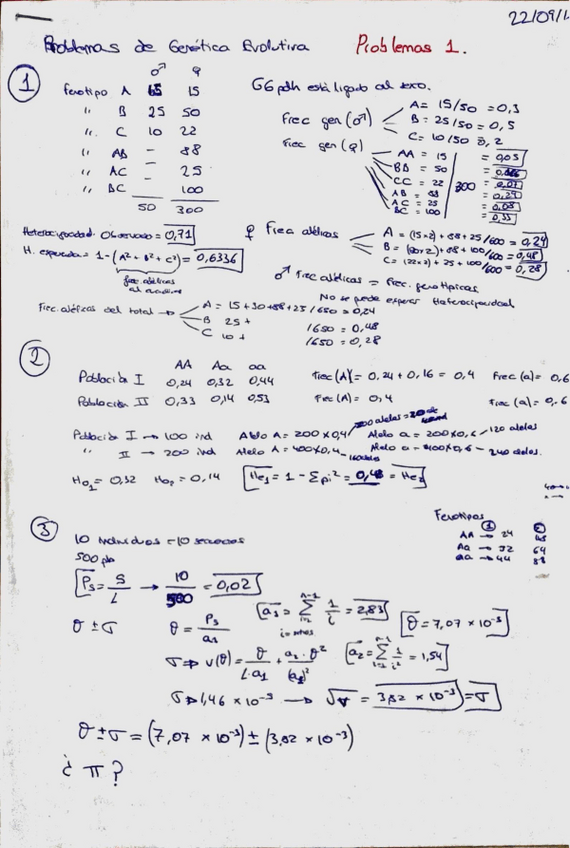 22/09/1
Problemas de Genética Evolutiva Problemas 1.
1
♂ ♀
Fenotipo A 15
" B 25 50
" C 10 22
" AB - 88
" AC - 25
" BC 100
50 300
G6pdh está ligado al sexo.
Frec gen (♂)
A = 15/50 = 0,3
B = 25/50 = 0,5
C = 10/50 0,2
Frec gen (♀)
AA = 15 = 0,05
BB = 50
CC = 22 300 = 0,07
AB = 88 = 0,29
AC = 25 = 0,08
BC = 100 = 0,33
Heterocigosidad Observada = 0,71
H. esperada = 1-(A²+B²+C²) = 0,6336
frec. alélicas
al cuadrado
♀ Frec alélicas
A = (15×2)+88+25/600 = 0,24
B = (50×2)+88+100/600 = 0,48
C = (22×2)+25+100/600 = 0,28
♂ Frec alélicas = Frec. genotípicas
No se puede esperar Heterocigosidad
Frec. alélicas del total →
A = 15+30+88+25/650 = 0,24
B 25+ /650 = 0,48
C 10+ /650 = 0,28
2
AA Aa aa
Población I 0,24 0,32 0,44 Frec (A) = 0,24 + 0,16 = 0,4 Frec (a) = 0,6
Población II 0,33 0,14 0,53 Frec (A) = 0,4 Frec (a) = 0,6
Población I → 100 ind Alelo A = 200×0,4 Alelo a = 200×0,6 - 120 alelos
" II → 200 ind Alelo A = 400×0,4 Alelo a - 400×0,6 - 240 alelos.
Ho₁ = 0,32 Ho₂ = 0,14 He₁ = 1 - Σpi² = 0,48 = He₂
Fenotipos
1 2
AA → 24
Aa → 32 64
aa → 44 88
3
10 individuos = 10 secuencias
500 pb
Ps = S/L → 10/500 = 0,02
a₁ = Σ 1/i = 2,83
n-1
θ ± σ θ = Ps/a₁ θ = 7,07 × 10⁻³
σ ⇒ v(θ) = θ/L·a₁ + a₂·θ²/(a₁)² a₂ = Σ 1/i² = 1,54
σ ⇒ 1,46 × 10⁻⁵ → √v = 3,82 × 10⁻³ = σ
θ ± σ = (7,07 × 10⁻³) ± (3,82 × 10⁻³)
¿ π ?